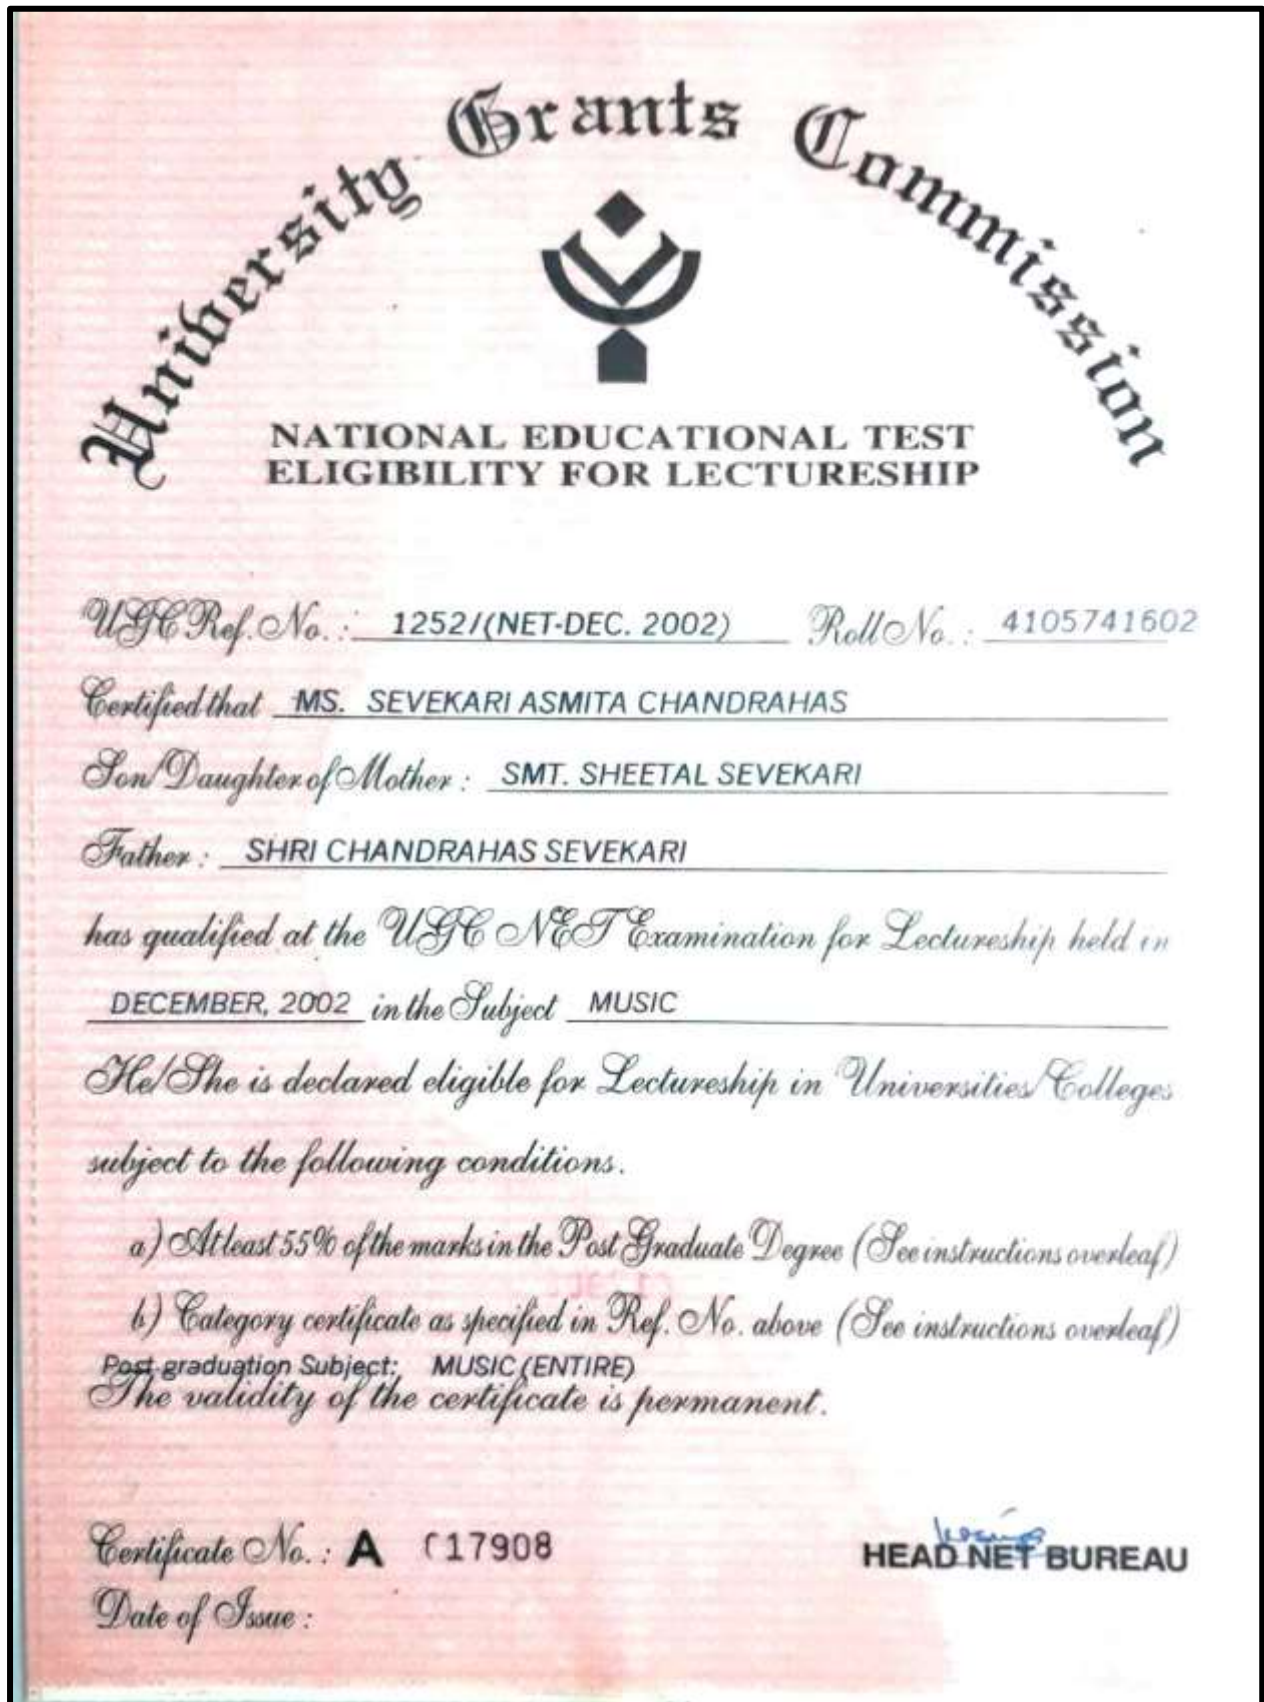 University Grants Commission
NATIONAL EDUCATIONAL TEST
ELIGIBILITY FOR LECTURESHIP
UGC Ref. No. : 1252/(NET-DEC. 2002) Roll No. : 4105741602
Certified that MS. SEVEKARI ASMITA CHANDRAHAS
Son/Daughter of Mother : SMT. SHEETAL SEVEKARI
Father : SHRI CHANDRAHAS SEVEKARI
has qualified at the UGC NET Examination for Lectureship held in
DECEMBER, 2002 in the Subject MUSIC
He/She is declared eligible for Lectureship in Universities/Colleges
subject to the following conditions.
a) Atleast 55% of the marks in the Post Graduate Degree (See instructions overleaf)
b) Category certificate as specified in Ref. No. above (See instructions overleaf)
Post-graduation Subject: MUSIC (ENTIRE)
The validity of the certificate is permanent.
Certificate No. : A 017908
HEAD NET BUREAU
Date of Issue :